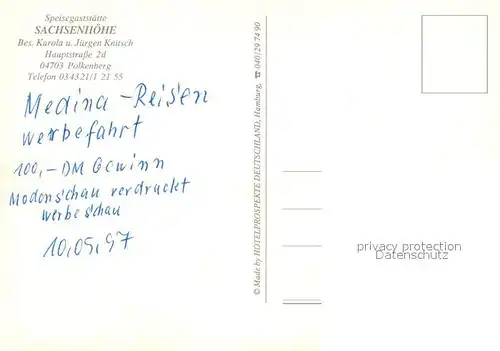 Speisegaststätte
SACHSENHÖHE
Bes. Karola u. Jürgen Knitsch
Hauptstraße 2d
04703 Polkenberg
Telefon 034321/1 21 55
Medina-Reisen
werbefahrt
100,- DM Gewinn
Modenschau verdruckt
werbeschau
10,05,97
© Made by HOTELPROSPEKTE DEUTSCHLAND, Hamburg, ☎ (040) 29 74 90
privacy protection
Datenschutz